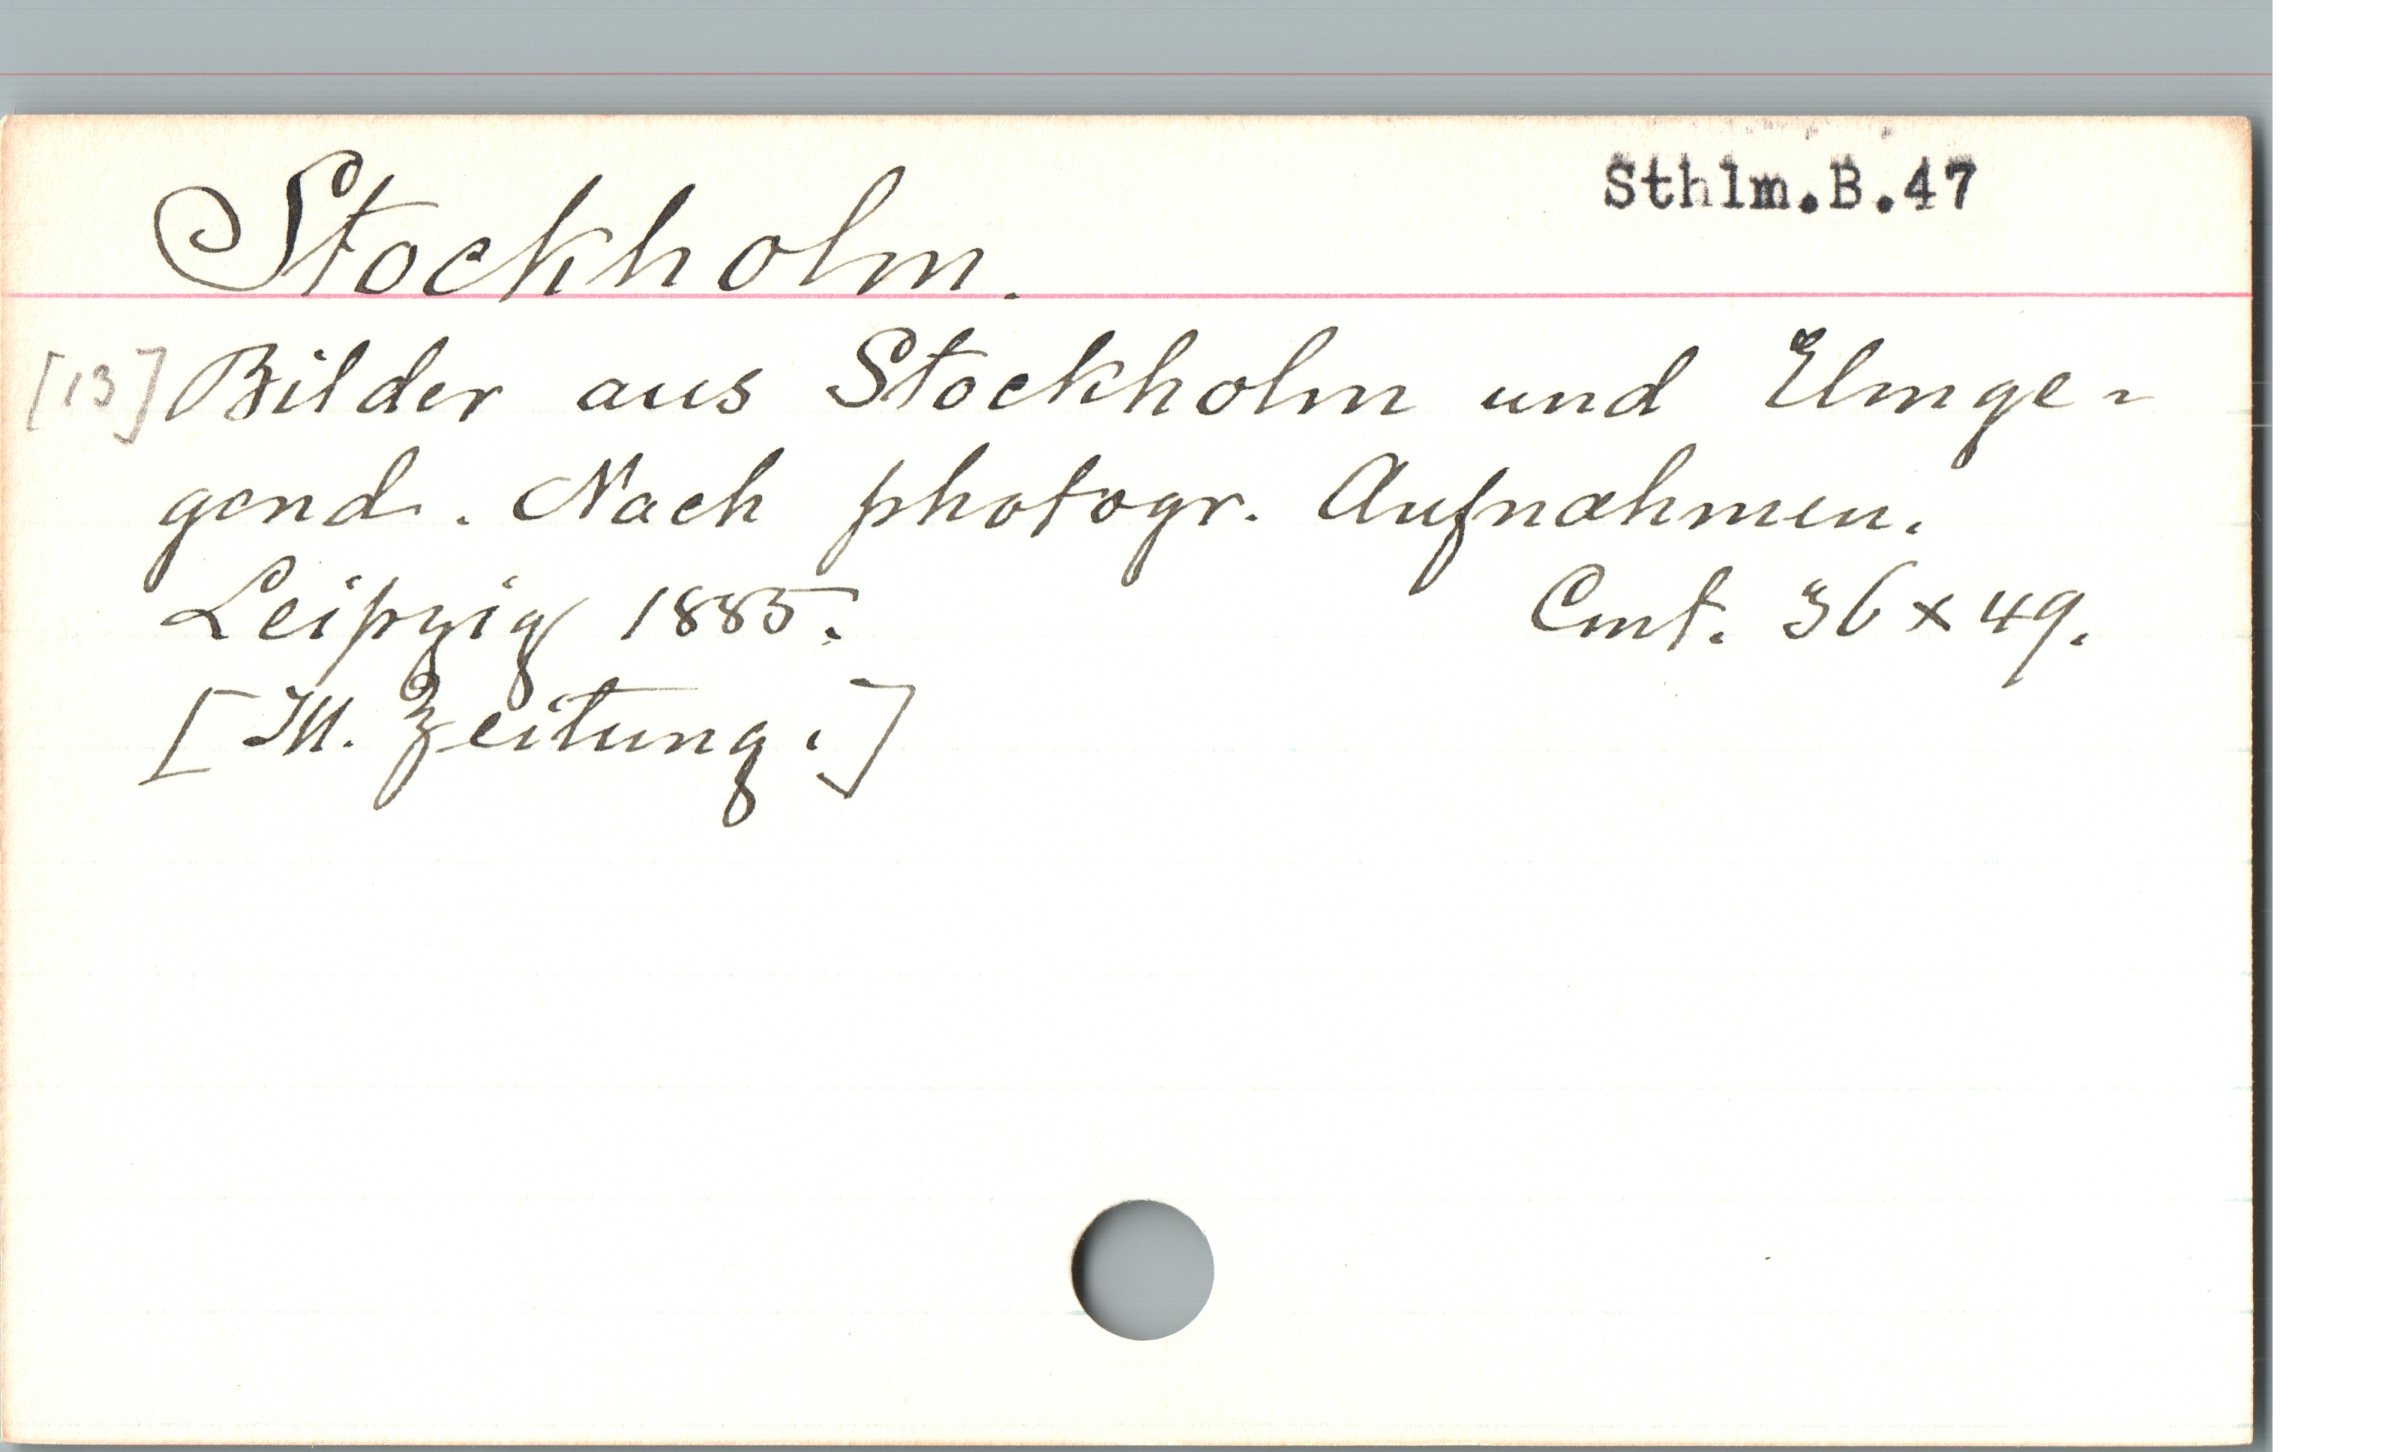 Sthlm.B.47
Stockholm.
[13] Bilder aus Stockholm und Umge-
gend. Nach photogr. Aufnahmen.
Leipzig 1885. Cmt. 36 x 49.
[Ill. Zeitung.]